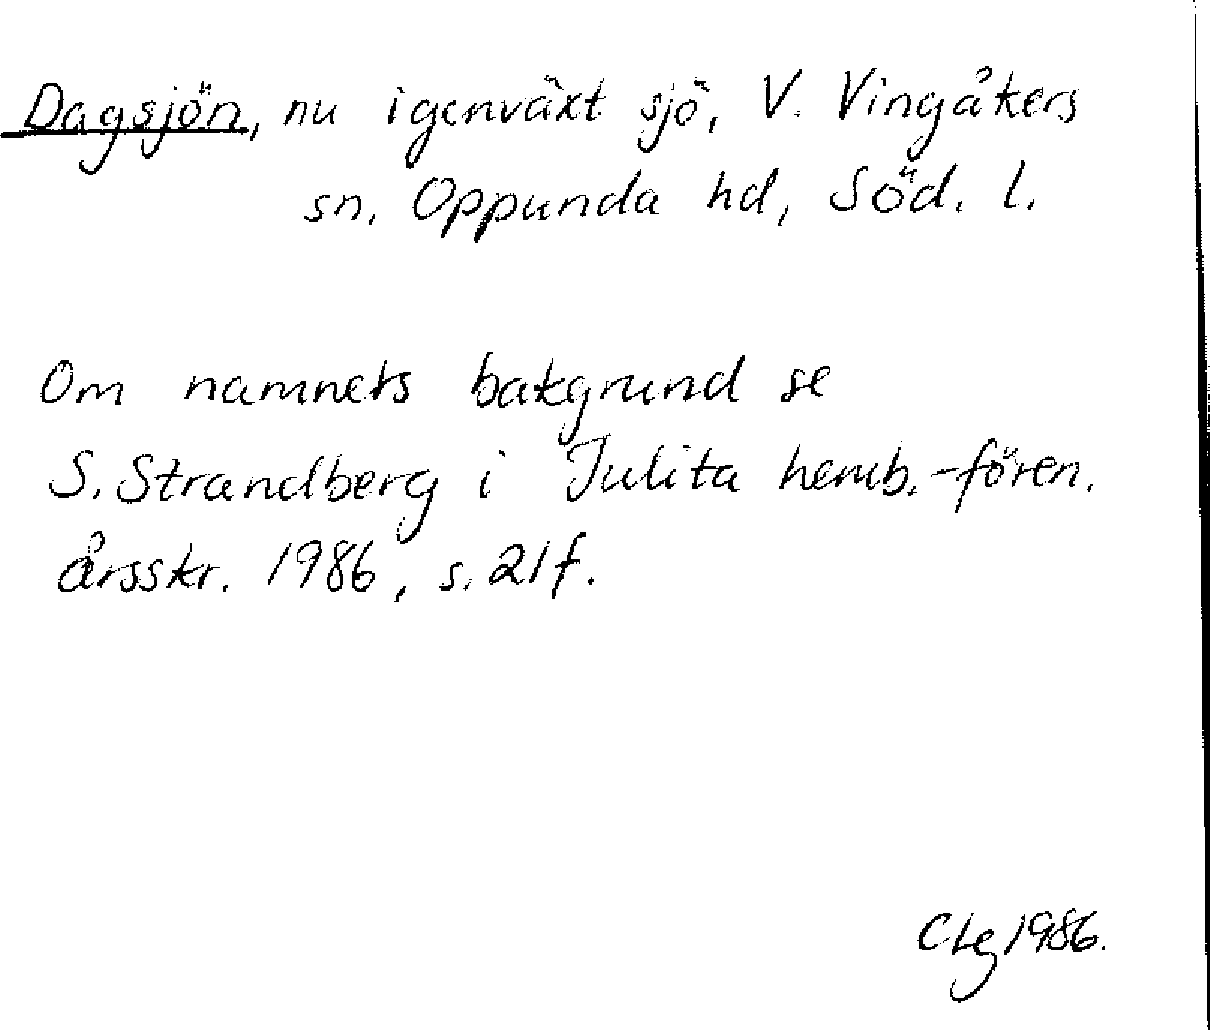 Dagsjön, nu igenväxt sjö, V. Vingåkers
sn. Oppunda hd, Söd. l.
Om namnets bakgrund se
S. Strandberg i Julita hemb.-fören.
årsskr. 1986, s. 21f.
CLg 1986.